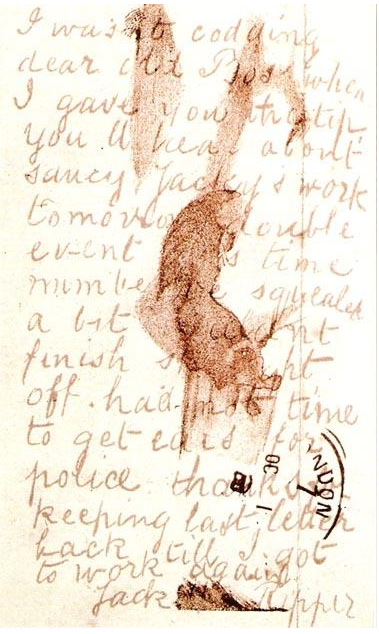 I was not codding
dear old Boss when
I gave you the tip,
you'll hear about
saucy Jacky s work
tomorrow double
event this time
number one squealed
a bit couldnt
finish straight
off. had not time
to get ears for
police thanks for
keeping last letter
back till I got
to work again.
Jack the Ripper
OC
30
1